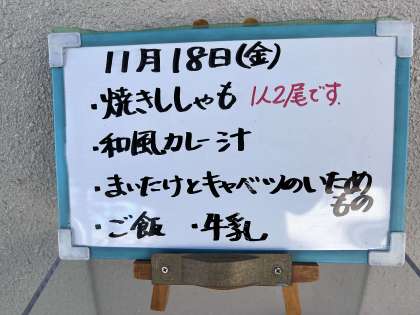 11月18日(金)
・焼きししゃも 1人2尾です.
・和風カレー汁
・まいたけとキャベツのいため
もの
・ご飯 ・牛乳